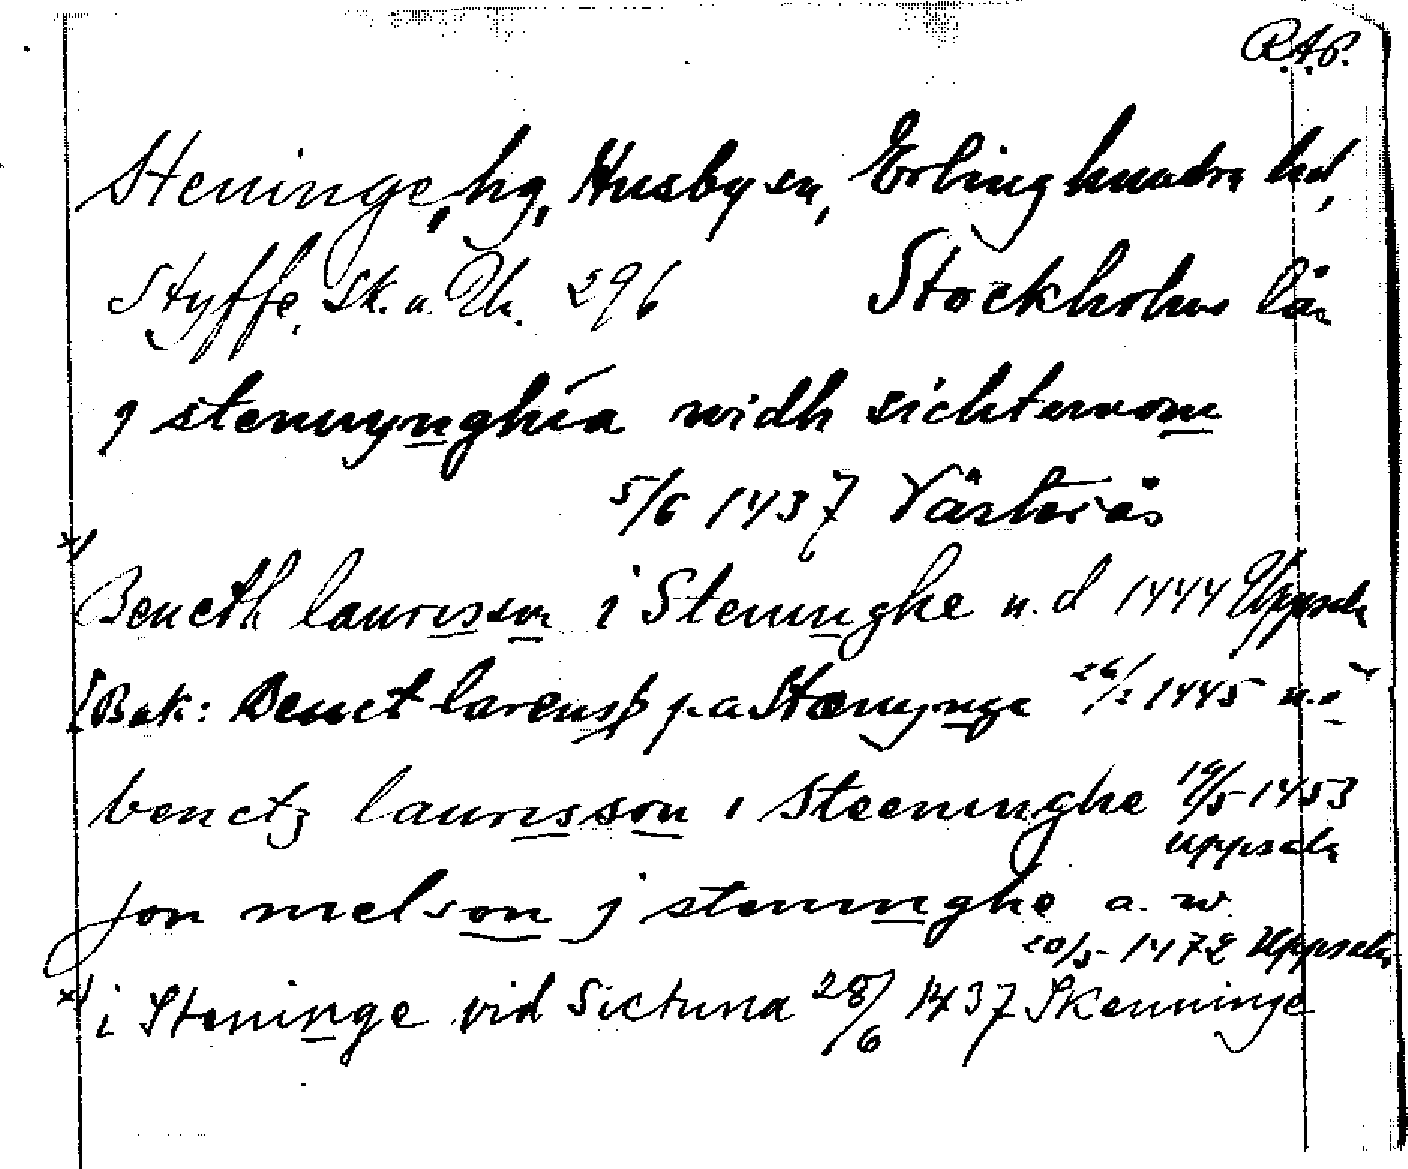 R.A.P.
Steninge, hg, Husby sn, Erlinghundra hd,
Styffe, Sk. u. Un. 296 Stockholms län
j stennynghia widh sichtunom
5/6 1437 Västerås
x/
Beneth laurisson i Stenninghe u. d 1444 Uppsala
[Bak: Benct larenss p a Stænynge 26/2 1445 u.o
benctz laurisson i Steeninghe 19/5 1453
Uppsala
Jon nielson j steninghe a. w.
20/5 1472 Uppsala
x/ i Steninge vid Sictuna 28/6 1437 Skenninge